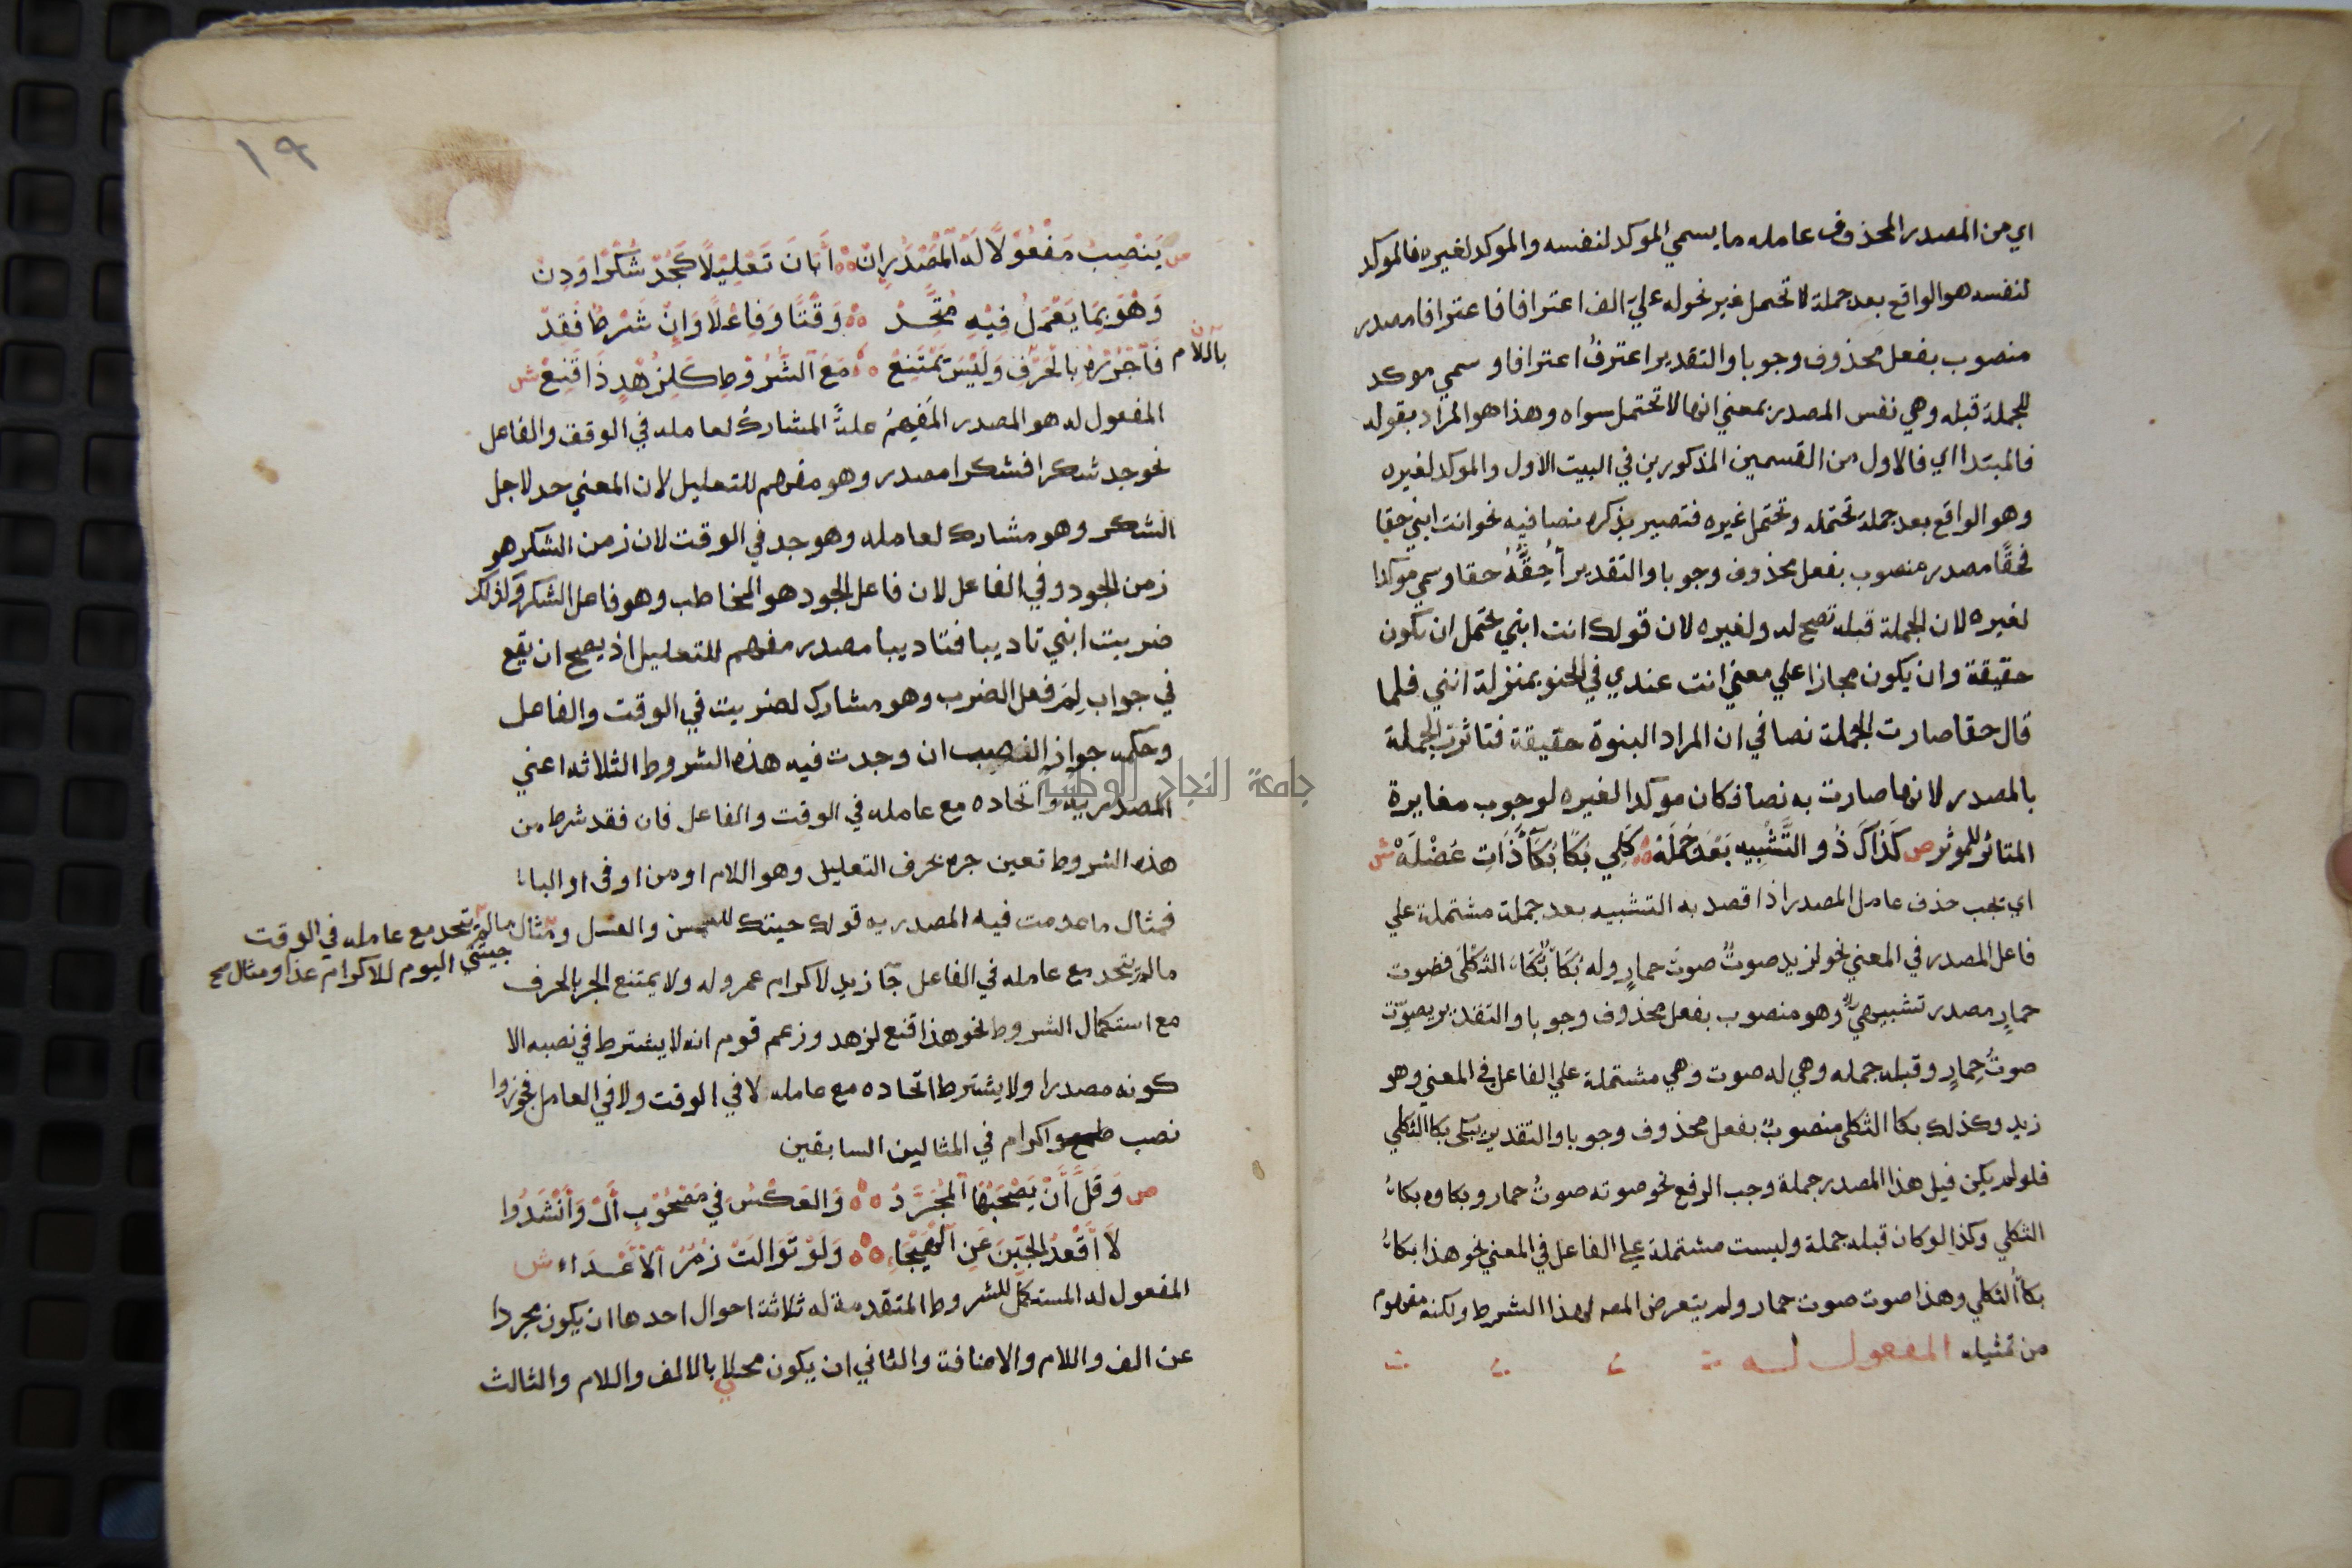 اي من المصدر المحذوف عامله ما يسمي الموكد لنفسه والموكد لغيره فالموكد
لنفسه هو الواقع بعد جملة لا تحمل غير نحو له علي الف اعترافا فاعترافا مصدر
منصوب بفعل محذوف وجوبا والتقدير اعترفُ اعترافا و سمي موكد
للجملة قبله وهي نفس المصدر بمعني انها لا تحتمل سواه وهذا هو المراد بقوله
فالمبتدا اي فالاول من القسمين المذكورين في البيت الاول والموكد لغيره
وهو الواقع بعد جملة تحتمله وتحتمل غيره فتصير بذكره نصا فيه نحو انت ابني حقا
فحقًا مصدر منصوب بفعل محذوف وجوبا والتقدير أُحِقُّهُ حقا وسمي موكدا
لغيره لان الجملة قبله تصح له ولغيره لان قولك انت ابني يحتمل ان تكون
حقيقة وان يكون مجازا علي معني انت عندي في الحنو بمنزلة ابني فلما
قال حقا صارت الجملة نصا في ان المراد البنوة حقيقة فتاثرت الجملة
بالمصدر لانها صارت به نصا فكان موكدا لغيره لوجوب مغايرة
المتاثر للموثر ص كَذَاكَ ذُو التَّشْبِيهِ بَعْدَ جُمْلَهْ كَلِي بُكًا بُكَآءَ ذَاتِ عُضْلَهْ ش
اي يجب حذف عامل المصدر اذا قصد به التشبيه بعد جملة مشتملة علي
فاعل المصدر في المعني نحو لزيد صوتٌ صوتَ حمارٍ وله بُكَآءٌ بُكَاءَ الثكلى فصوت
حمارٍ مصدر تشبيهيٌ وهو منصوب بفعل محذوف وجوبا والتقدير يصوّت
صوتَ حِمارٍ وقبله جمله وهي له صوت وهي مشتملة علي الفاعل في المعني وهو
زيد وكذلك بكا الثكلى منصوبٌ بفعل محذوف وجوبا والتقدير يبكى بكا الثكلي
فلو لم يكن قبل هذا المصدر جملة وجب الرفع نحو صوته صوتُ حمار وبكاوه بكاءُ
الثكلي وكذا لو كان قبله جملة وليست مشتملة علي الفاعل في المعني نحو هذا بكاءُ
بكآءُ الثكلي وهذا صوت صوت حمار ولم يتعرض المصـ لهذا الشرط ولكنه مفهوم
من تمثيله المفعول له
١٩
ص يَنْصِبُ مَفْعُولًا لَهُ الْمَصْدَرُ إِنْ أَبَانَ تَعْلِيْلًا كَجُدْ شُكْرًا وَدِنْ
وَهْوَ بِمَا يَعْمَلُ فِيْهِ مُتَّحِدْ وَقْتًا وَفَاعِلًا وَإِنْ شَرْطٌ فُقِدْ
فَآجْرُرْهُ بِالْحَرْفِ وَلَيْسَ يَمْتَنِعْ مَعَ الشُّرُوْطِ كَلِزُهْدٍ ذَا قَنِعْ ش
بآللام ن
المفعول له هو المصدر المُفهِمُ علةً المشاركُ لعامله في الوقف والفاعل
نحو جد شكرا فشكرا مصدر وهو مفهم للتعليل لان المعني جد لاجل
الشكر وهو مشارك لعامله وهو جد في الوقت لان زمن الشكر هو
زمن الجود وفي الفاعل لان فاعل الجود هو المخاطب وهو فاعل الشكر وكذلك
ضربت ابني تاديبا فتاديبا مصدر مفهم للتعليل اذ يصح ان يقع
في جواب لِمَ فعل الضرب وهو مشارك لضربت في الوقت والفاعل
وحكمه جواز النصب ان وجدت فيه هذه الشروط الثلاثه اعني
المصدرية واتحاده مع عامله في الوقت والفاعل فان فقد شرط من
هذه الشروط تعين جره بحرف التعليل وهو اللام او من او فى او الباء
فمثال ما عدمت فيه المصدريه قولك جيتك للسمن والعسل ومثال ما لم يتحد مع عامله في الوقت
جيتني اليوم للاكرام غدا ومثال صح
ما لم يتحد مع عامله في الفاعل جآ زيد لاكرام عمرو له ولا يمتنع الجر بالحرف
مع استكمال الشروط نحو هذا قنع لزهد وزعم قوم انه لا يشترط في نصبه الا
كونه مصدرا ولا يشترط اتحاده مع عامله لا في الوقت ولا في العامل فجوزوا
نصب واكرام في المثالين السابقين
ص وَقَلَّ أَنْ يَصْحَبَهَا الْمُجَرَّدُ وَالعَكْسُ فِي مَصْحُوْبِ أَلْ وَأَنْشَدُوا
لَا أَقْعُدُ الْجُبْنَ عَنِ الْهَيْجَاءِ وَلَوْ تَوَالَتْ زُمَرُ الْأَعْدَاءِ ش
المفعول له المستكمل للشروط المتقدمة له ثلاثة احوال احدها ان يكون مجردا
عن الف واللام والاضافة والثاني ان يكون محلي بالالف واللام والثالث
جامعة النجاح الوطنية